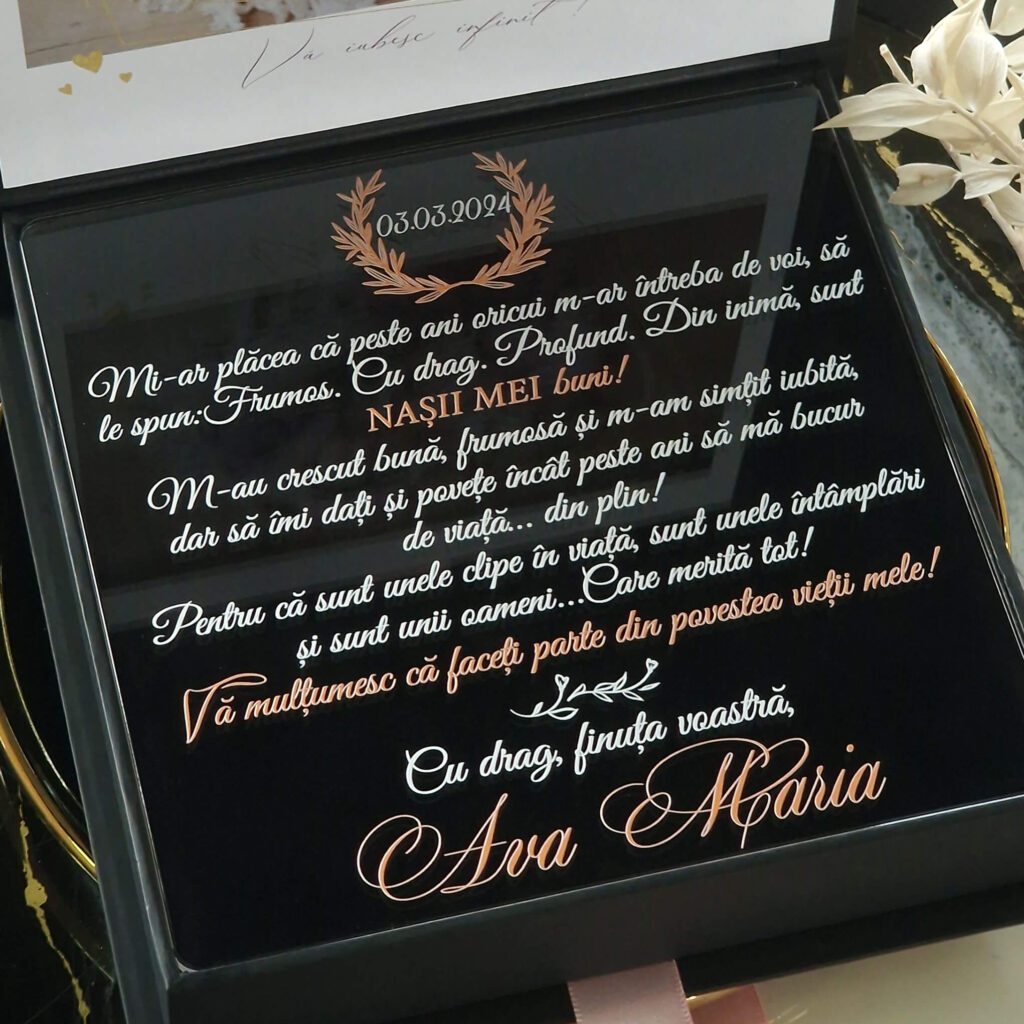 Vă iubesc infinit!
03.03.2024
Mi-ar plăcea că peste ani oricui m-ar întreba de voi, să
le spun:Frumos. Cu drag. Profund. Din inimă, sunt
NAȘII MEI buni!
M-au crescut bună, frumosă și m-am simțit iubită,
dar să îmi dați și povețe încât peste ani să mă bucur
de viață... din plin!
Pentru că sunt unele clipe în viață, sunt unele întâmplări
și sunt unii oameni...Care merită tot!
Vă mulțumesc că faceți parte din povestea vieții mele!
Cu drag, finuța voastră,
Ava Maria